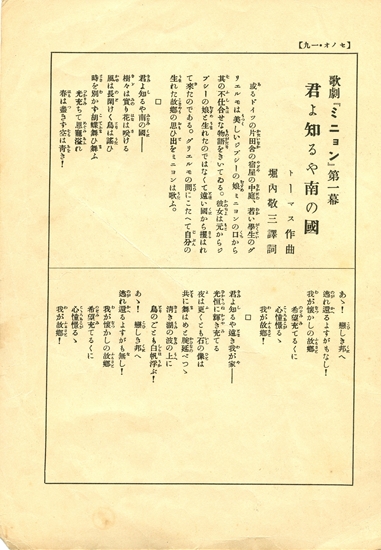 【セノオ・一九】
歌劇『ミニョン』第一幕
君よ知るや南の國
トーマス作曲
堀內敬三譯詞
或るドイツの片田舍の宿屋の中庭、若い學生のグ
リエルモは美しいジプシーの娘ミニヨンの口から
其の不仕合せな物語をきいてゐる。彼女は元からジ
プシーの娘と生れたのではなくて遠い國から攫はれ
て來たのである。グリエルモの問にこたへて自分の
生れた故鄕の思ひ出をミニヨンは歌ふ。
□
君よ知るや南の國――
樹々は實り花は咲ける
風は長閑けく鳥は謠ひ
時を別かず胡蝶舞ひ舞ふ
光充ちて恩寵溢れ
春は盡きず空は靑き!
あゝ! 戀しき邦へ
逃れ還るよすがもなし!
我が懷かしの故鄕
希望充てるくに
心憧憬るゝ
我が故鄕!
□
君よ知るや遠き我が家――
光恒に輝き充てる
夜は更くとも石の像は
共に舞はめと腕延べつゝ
淸き湖の波の上に
鳥のごとも白帆浮ぶ!
あゝ! 戀しき邦へ
逃れ還るよすがも無し!
我が懷かしの故鄕
希望充てるくに
心憧憬るゝ
我が故鄕!